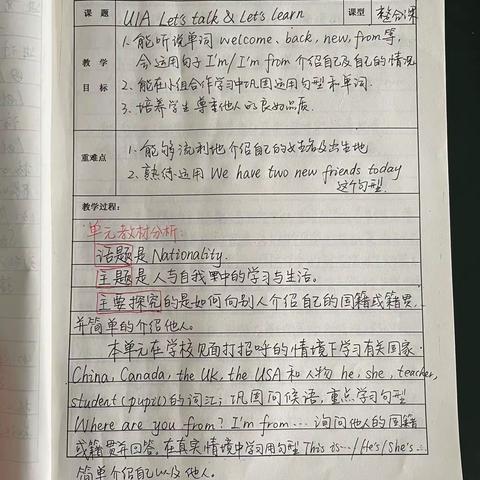 课题 U1A Let's talk & Let's learn 课型 整合课
1. 能听说单词 welcome、back, new, from等,
会运用句子 I'm/I'm from 介绍自己及自己的情况
教学目标 2. 能在小组合作学习中巩固运用句型和单词.
3. 培养学生尊重他人的良好品质.
重难点 1. 能够流利地介绍自己的姓名及出生地
2. 熟练运用 We have two new friends today
这个句型.
教学过程:
单元教材分析:
话题是 Nationality.
主题是人与自我里中的学习与生活。
主要探究的是如何向别人介绍自己的国籍或籍贯,
并简单的介绍他人。
本单元在学校见面打招呼的情境下学习有关国家.
China, Canada, the UK, the USA 和人物 he, she, teacher,
student (pupil) 的词汇; 巩固问候语, 重点学习句型
Where are you from? I'm from… 询问他人的国籍
或籍贯并回答。在真实情境中学习用句型 This is…/He's/She's…
简单介绍自己以及他人。